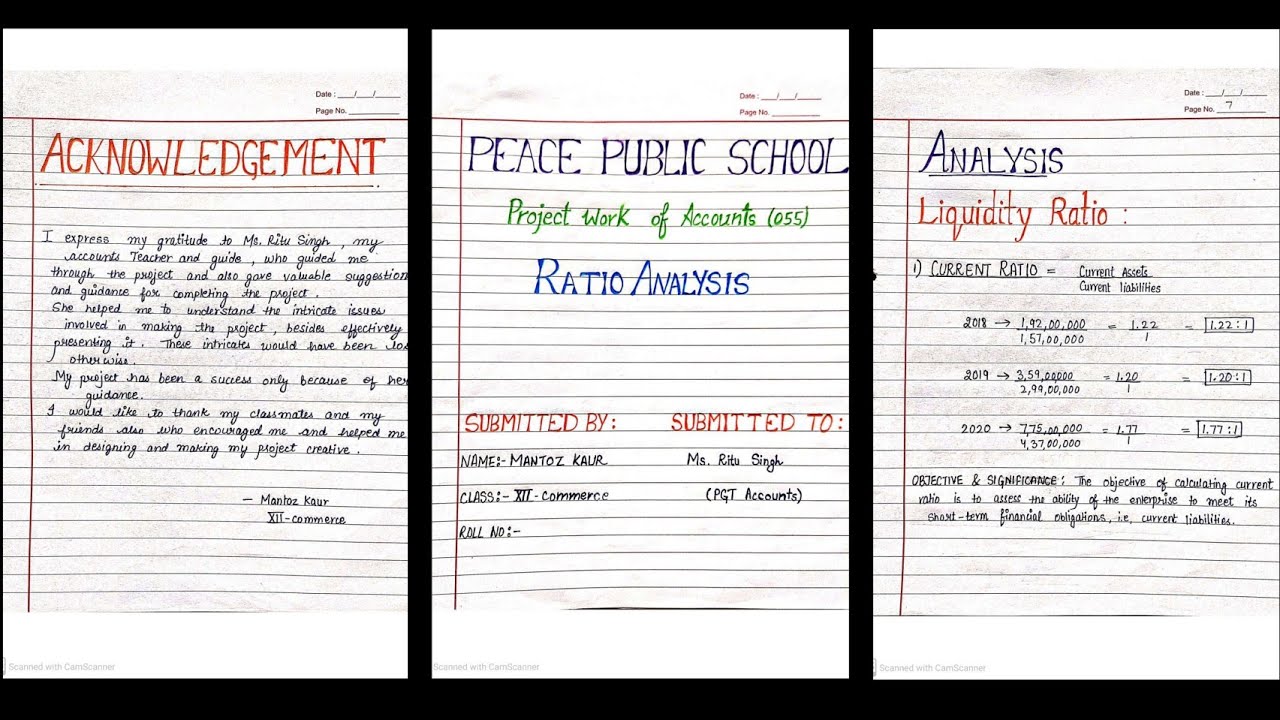 Date : ___/___/_____
Page No. ____________
ACKNOWLEDGEMENT
I express my gratitude to Ms. Ritu Singh, my
accounts Teacher and guide, who guided me
through the project and also gave valuable suggestion
and guidance for completing the project.
She helped me to understand the intricate issues
involved in making the project, besides effectively
presenting it. These intricates would have been los
otherwise.
My project has been a success only because of her
guidance.
I would like to thank my classmates and my
friends also who encouraged me and helped me
in designing and making my project creative.
— Mantoz Kaur
XII-commerce
Scanned with CamScanner
Date : ___/___/_____
Page No. ____________
PEACE PUBLIC SCHOOL
Project Work of Accounts (055)
RATIO ANALYSIS
SUBMITTED BY: SUBMITTED TO:
NAME:- MANTOZ KAUR Ms. Ritu Singh
CLASS:- XII-Commerce (PGT Accounts)
ROLL NO:-
Scanned with CamScanner
Date : ___/___/_____
Page No. 7
ANALYSIS
Liquidity Ratio :
1) CURRENT RATIO = Current Assets
Current liabilities
2018 → 1,92,00,000 = 1.22 = 1.22:1
1,57,00,000 1
2019 → 3,59,00,000 = 1.20 = 1.20:1
2,99,00,000 1
2020 → 7,75,00,000 = 1.77 = 1.77:1
4,37,00,000 1
OBJECTIVE & SIGNIFICANCE: The objective of calculating current
ratio is to assess the ability of the enterprise to meet its
short-term financial obligations, i.e, current liabilities.
Scanned with CamScanner